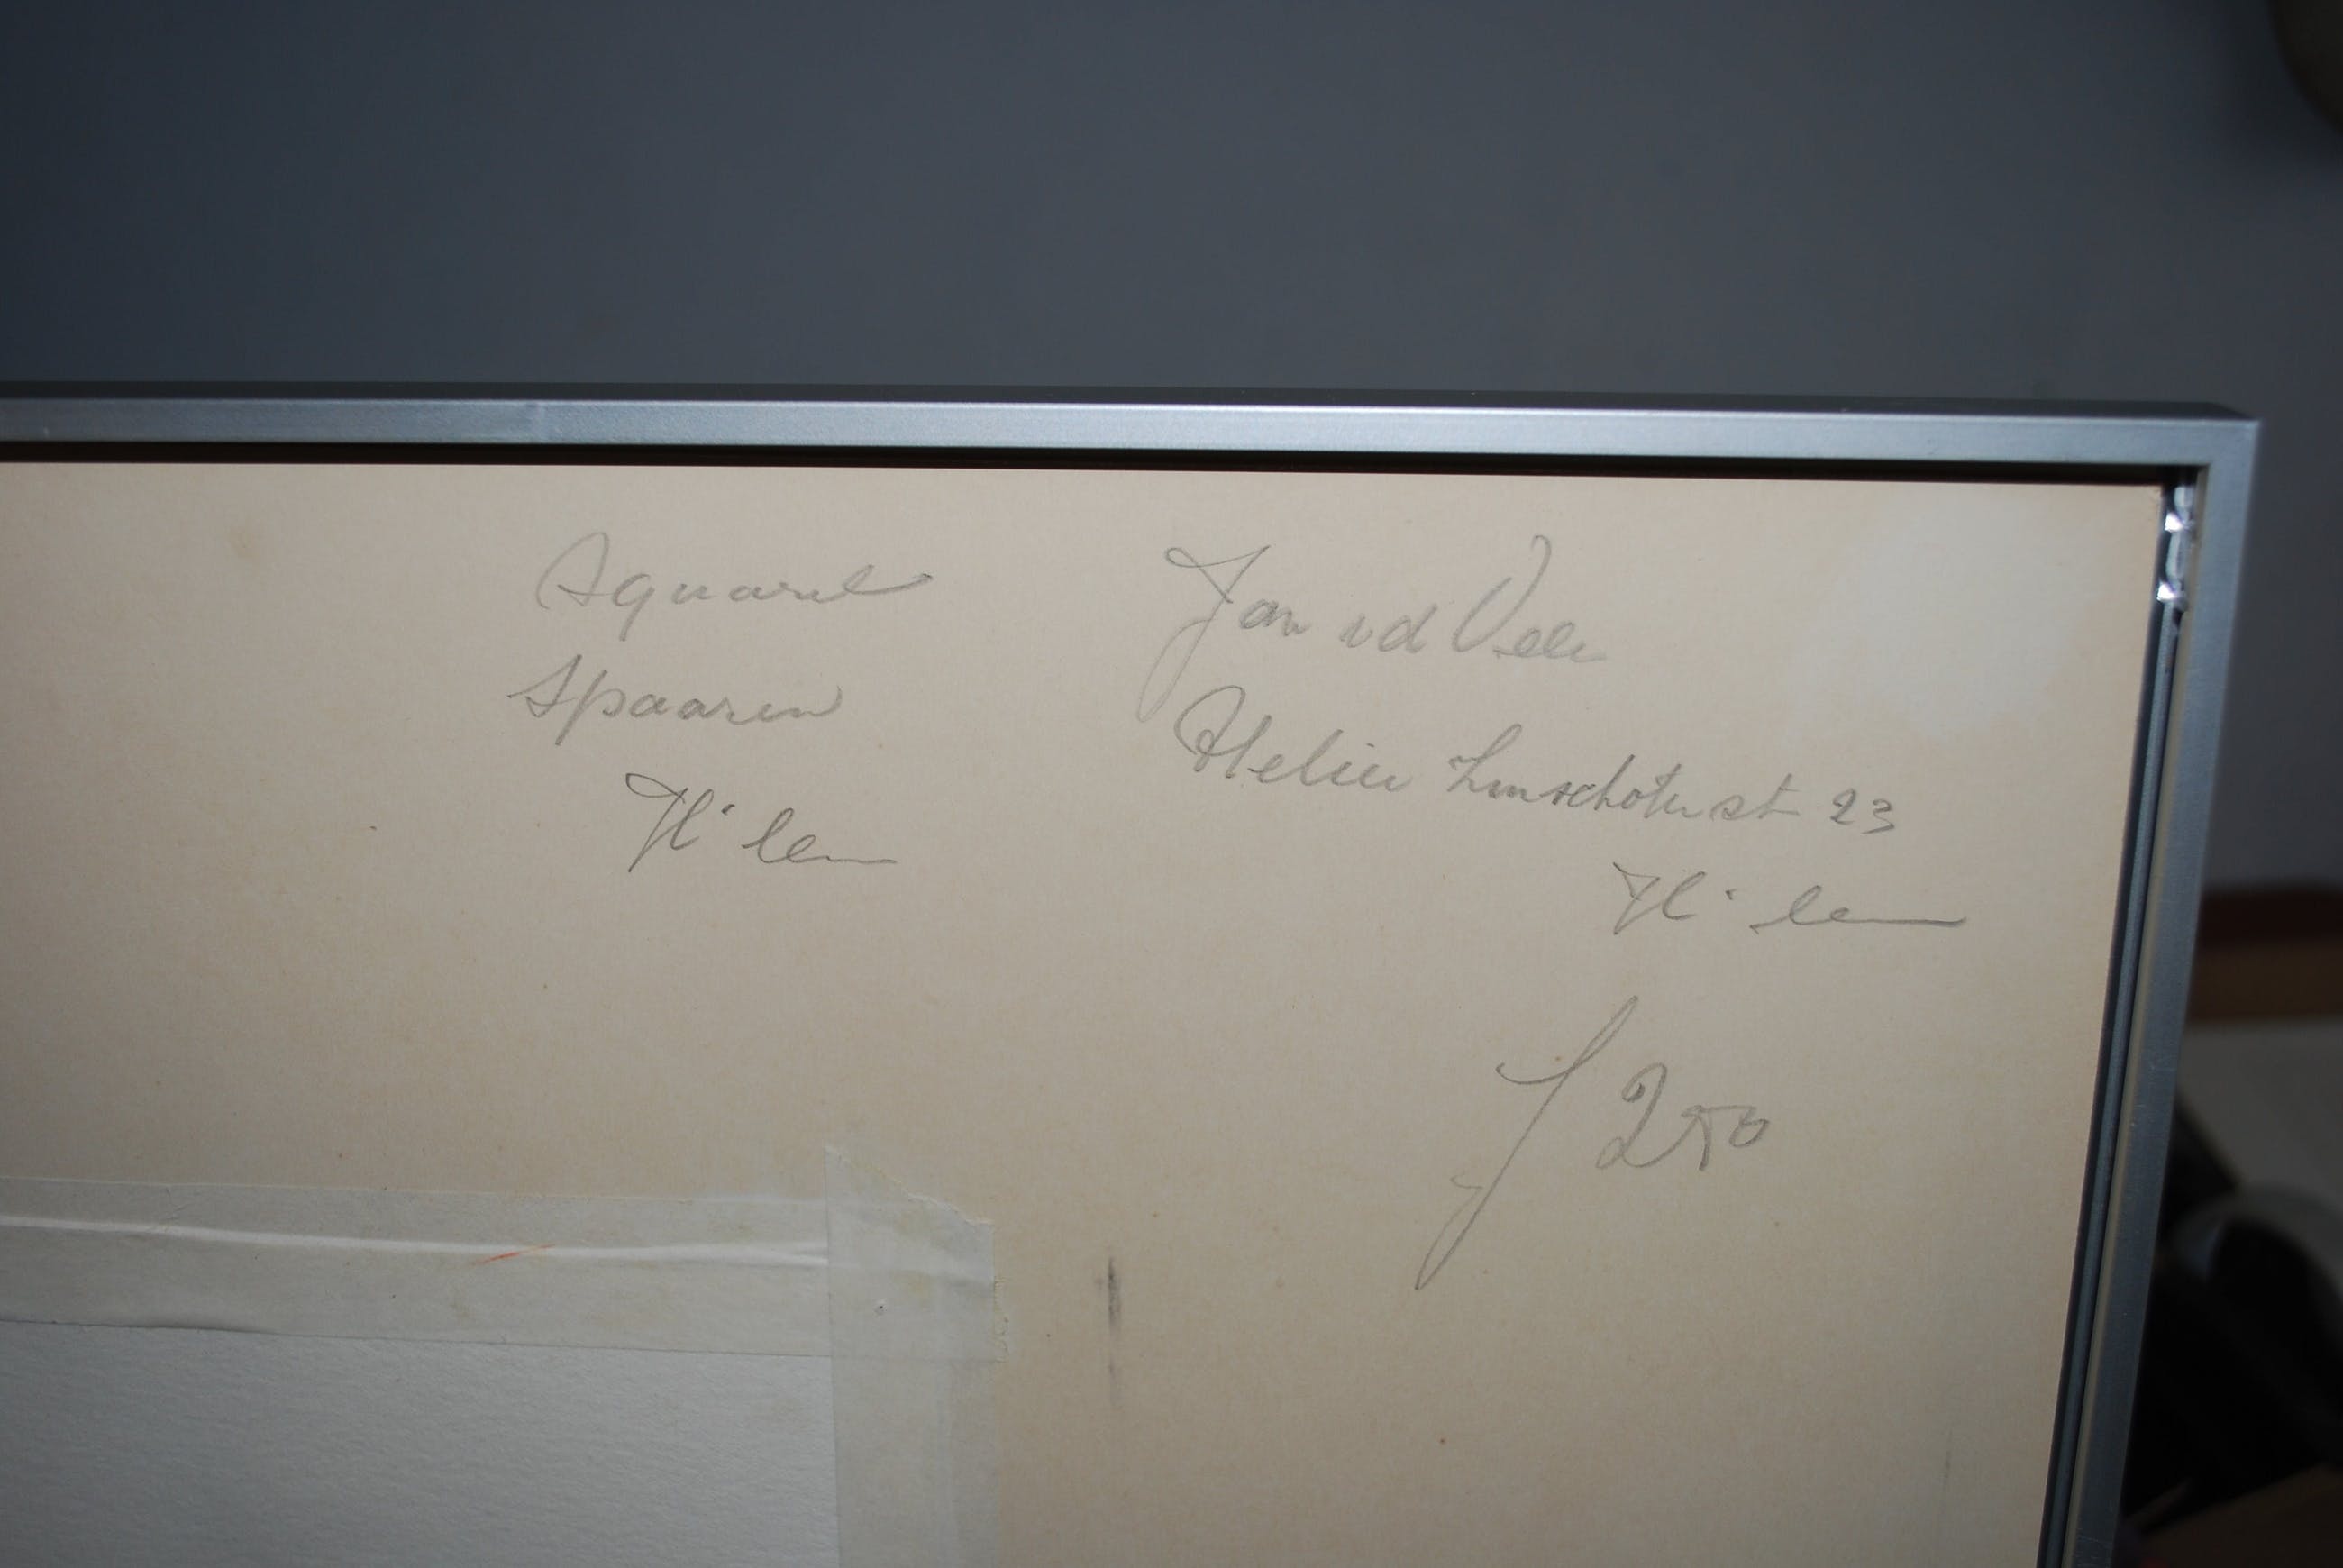 Aquarel
Spaaren
H'lem
Jan vd Velde
Atelier Linschotenst 23
H'lem
f 250